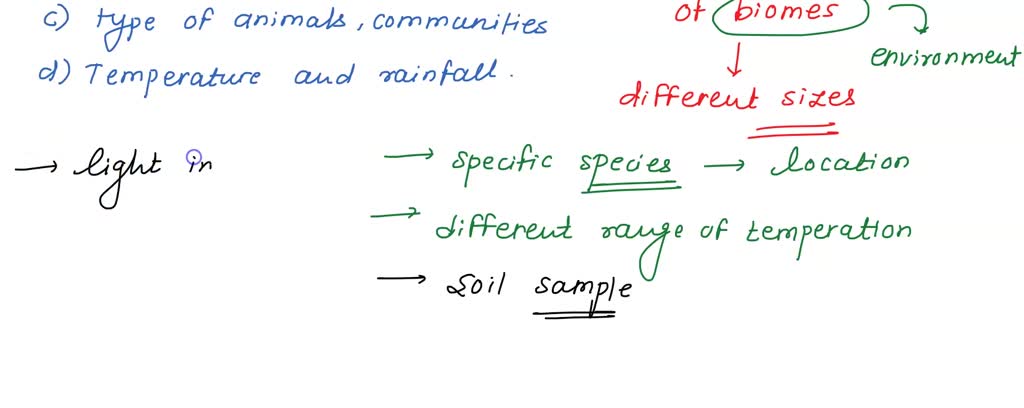 c) type of animals, communities
d) Temperature and rainfall.
of biomes
environment
different sizes
→ light in
→ specific species → location
→ different range of temperation
→ soil sample